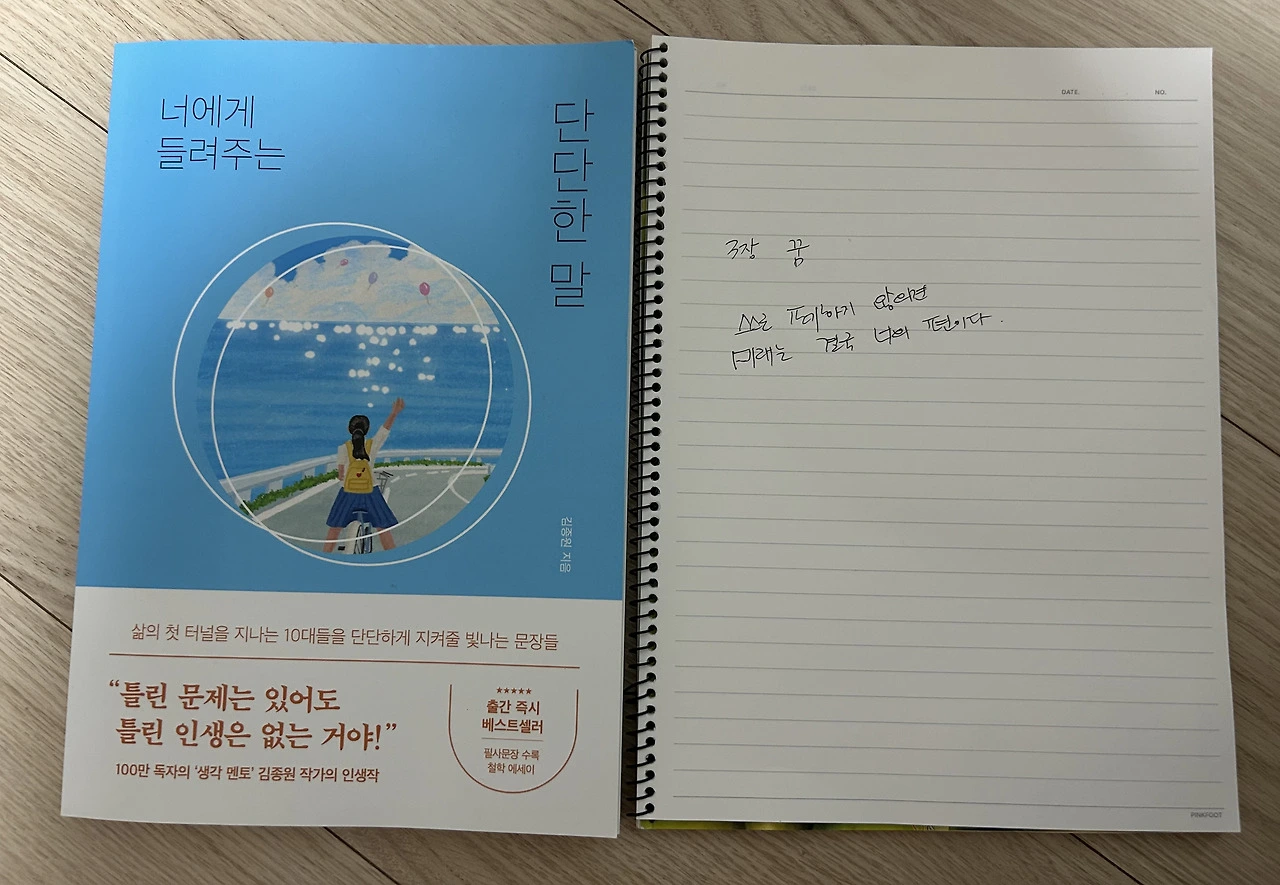 너에게
들려주는
단단한 말
김종원 지음
삶의 첫 터널을 지나는 10대들을 단단하게 지켜줄 빛나는 문장들
“틀린 문제는 있어도
틀린 인생은 없는 거야!”
100만 독자의 ‘생각 멘토’ 김종원 작가의 인생작
★★★★★
출간 즉시
베스트셀러
필사문장 수록
철학 에세이
DATE. NO.
3장 꿈
포기하지 않으면
미래는 결국 너의 편이다.
PINKFOOT